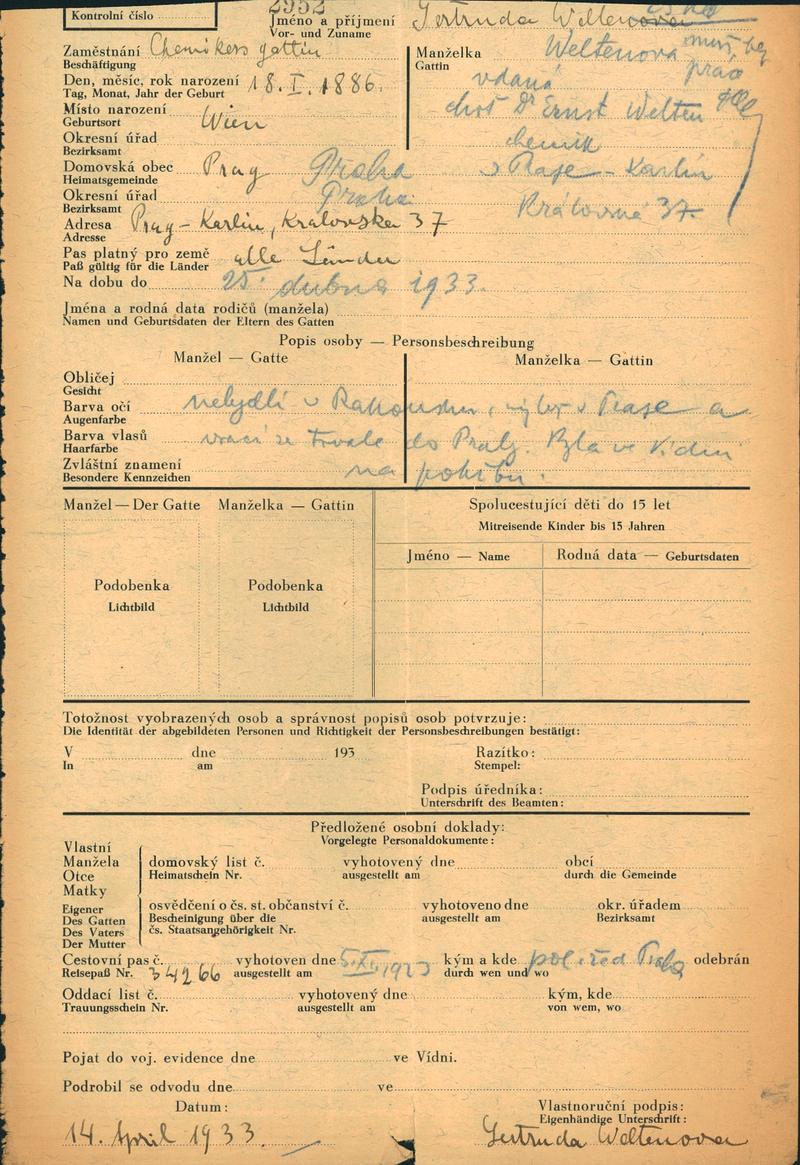 Kontrolní číslo
2952
Jméno a příjmení Gertruda Weltenova
Vor- und Zuname
Zaměstnání Chemikers gattin
Beschäftigung
Den, měsíc, rok narození 18. I. 1886.
Tag, Monat, Jahr der Geburt
Místo narození Wien
Geburtsort
Okresní úřad
Bezirksamt
Domovská obec Prag Praha
Heimatsgemeinde
Okresní úřad Praha
Bezirksamt
Adresa Prag - Karlin, Kralovska 37
Adresse
Pas platný pro země alle Länder
Paß gültig für die Länder
Na dobu do 25. dubna 1933.
Manželka Weltenová
Gattin
vdaná
choť Dr Ernst Welten
chemik
v Praze - Karlín
Královská 37.
Jména a rodná data rodičů (manžela)
Namen und Geburtsdaten der Eltern des Gatten
Popis osoby — Personsbeschreibung
Manžel — Gatte Manželka — Gattin
Obličej
Gesicht
Barva očí nebydlí v Rakousku, v Praze a
Augenfarbe
Barva vlasů vrací se trvale do Prahy. Byla ve Vídni
Haarfarbe
Zvláštní znamení na pohřbu.
Besondere Kennzeichen
Manžel — Der Gatte Manželka — Gattin
Podobenka Podobenka
Lichtbild Lichtbild
Spolucestující děti do 15 let
Mitreisende Kinder bis 15 Jahren
Jméno — Name Rodná data — Geburtsdaten
Totožnost vyobrazených osob a správnost popisů osob potvrzuje:
Die Identität der abgebildeten Personen und Richtigkeit der Personsbeschreibungen bestätigt:
V dne 193 Razítko:
In am Stempel:
Podpis úředníka:
Unterschrift des Beamten:
Předložené osobní doklady:
Vorgelegte Personaldokumente:
Vlastní
Manžela
Otce
Matky
domovský list č. vyhotovený dne obcí
Heimatschein Nr. ausgestellt am durch die Gemeinde
Eigener
Des Gatten
Des Vaters
Der Mutter
osvědčení o čs. st. občanství č. vyhotoveno dne okr. úřadem
Bescheinigung über die ausgestellt am Bezirksamt
čs. Staatsangehörigkeit Nr.
Cestovní pas č. vyhotoven dne 5. XI. 1923 kým a kde pol. řed. Praha odebrán
Reisepaß Nr. 34266 ausgestellt am durch wen und wo
Oddací list č. vyhotovený dne kým, kde
Trauungsschein Nr. ausgestellt am von wem, wo
Pojat do voj. evidence dne ve Vídni.
Podrobil se odvodu dne ve
Datum: Vlastnoruční podpis:
Eigenhändige Unterschrift:
14. April 1933. Gertruda Weltenova